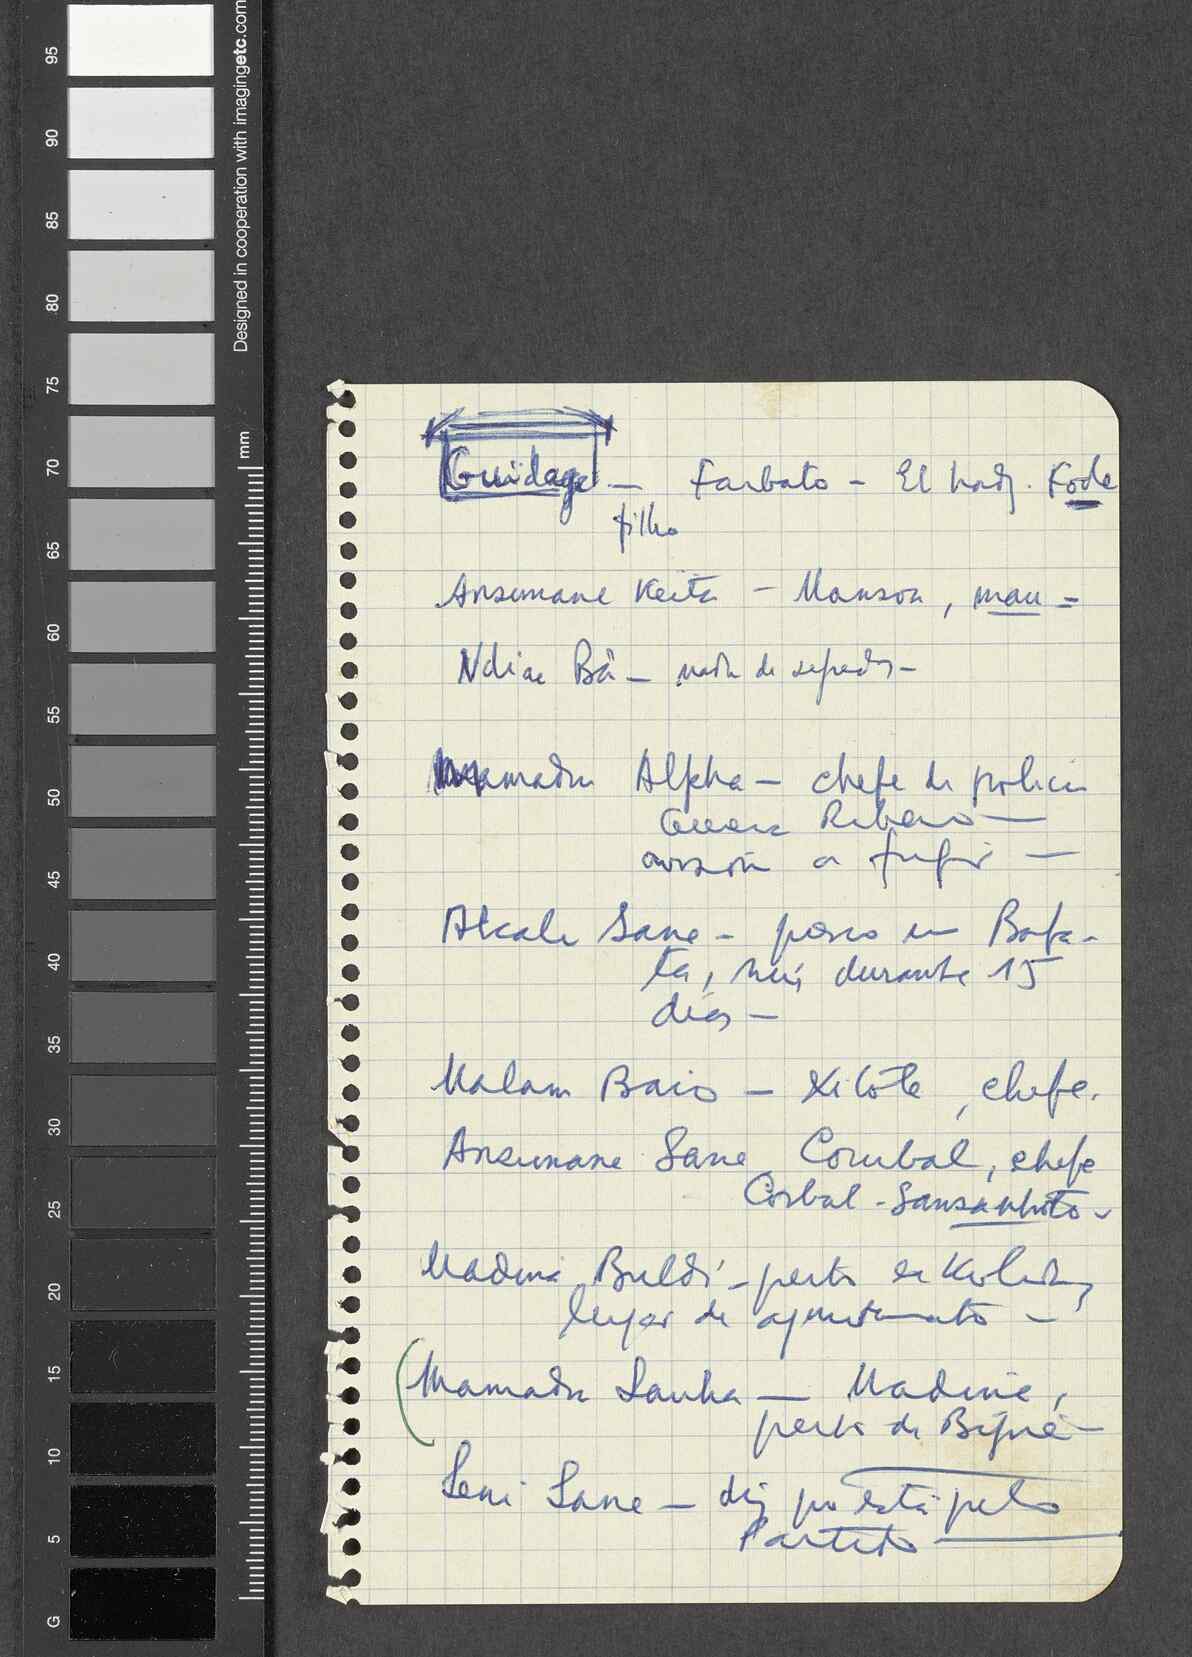 Designed in cooperation with imagingetc.com
mm
95
90
85
80
75
70
65
60
55
50
45
40
35
30
25
20
15
10
5
G
Guidage — Farbato – El hadj. Fode
filho
Ansumane Keita – Manson, mau –
Ndiae Bâ — nada de segredos –
Mamadu Alpha – chefe de policia
Ribeiro —
a fugir —
Alcali Sane – preso em Bafa-
tá, durante 15
dias –
Malam Baio – Kilote, chefe.
Ansumane Sane Corubal, chefe
Corbal - Sansanhoto –
Madina Buldi – perto de
lugar de ajuntamento –
(Mamadu Sanha — Madina,
perto de Bijine –
Seni Sane – diz que está pelo
Partido —